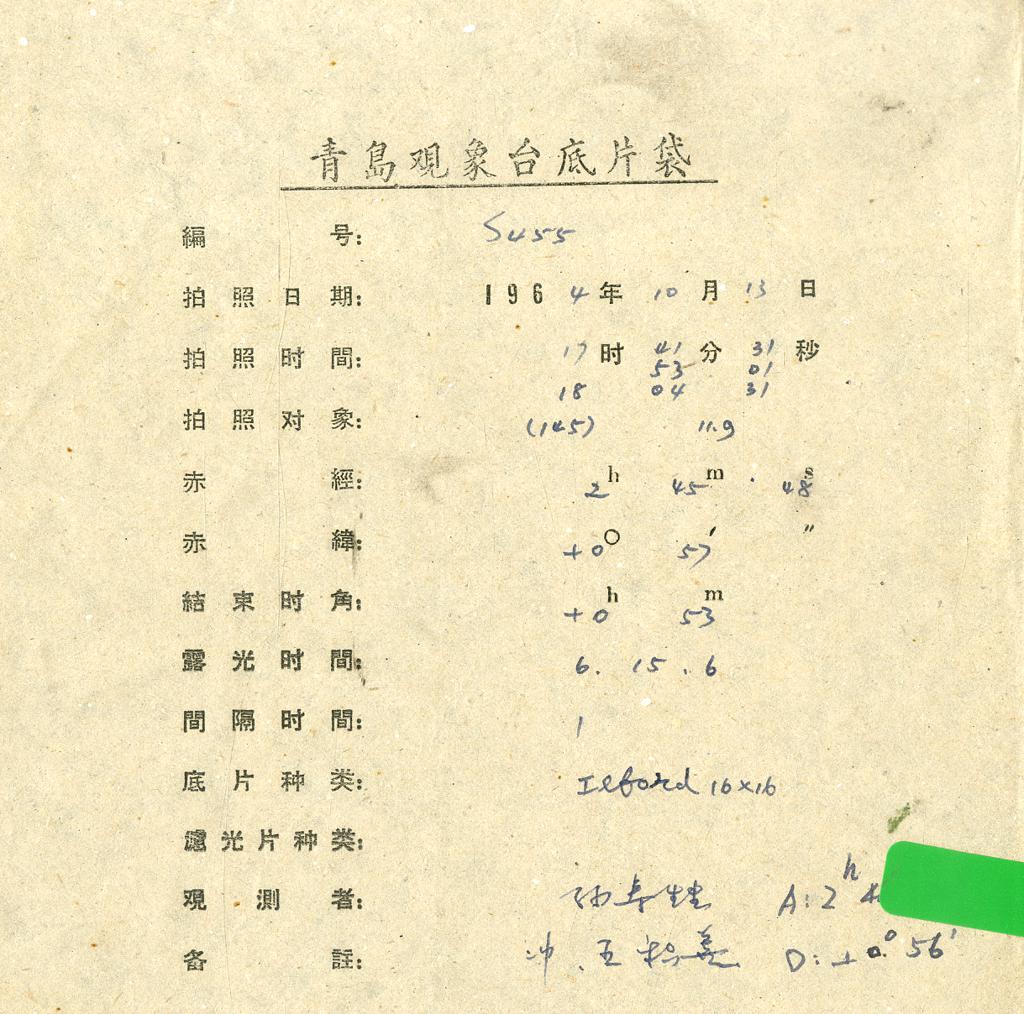 青島观象台底片袋
編号: S455
拍照日期: 1964年10月13日
拍照时間: 17时41分31秒
53 01
18 04 31
拍照对象: (145) 11.9
赤經: 2h 45m 48s
赤緯: +0° 57′ ″
結束时角: +0h 53m
露光时間: 6. 15. 6
間隔时間: 1
底片种类: Ilford 16×16
濾光片种类:
观測者: A: 2h
备註: 冲. D: +0° 56′